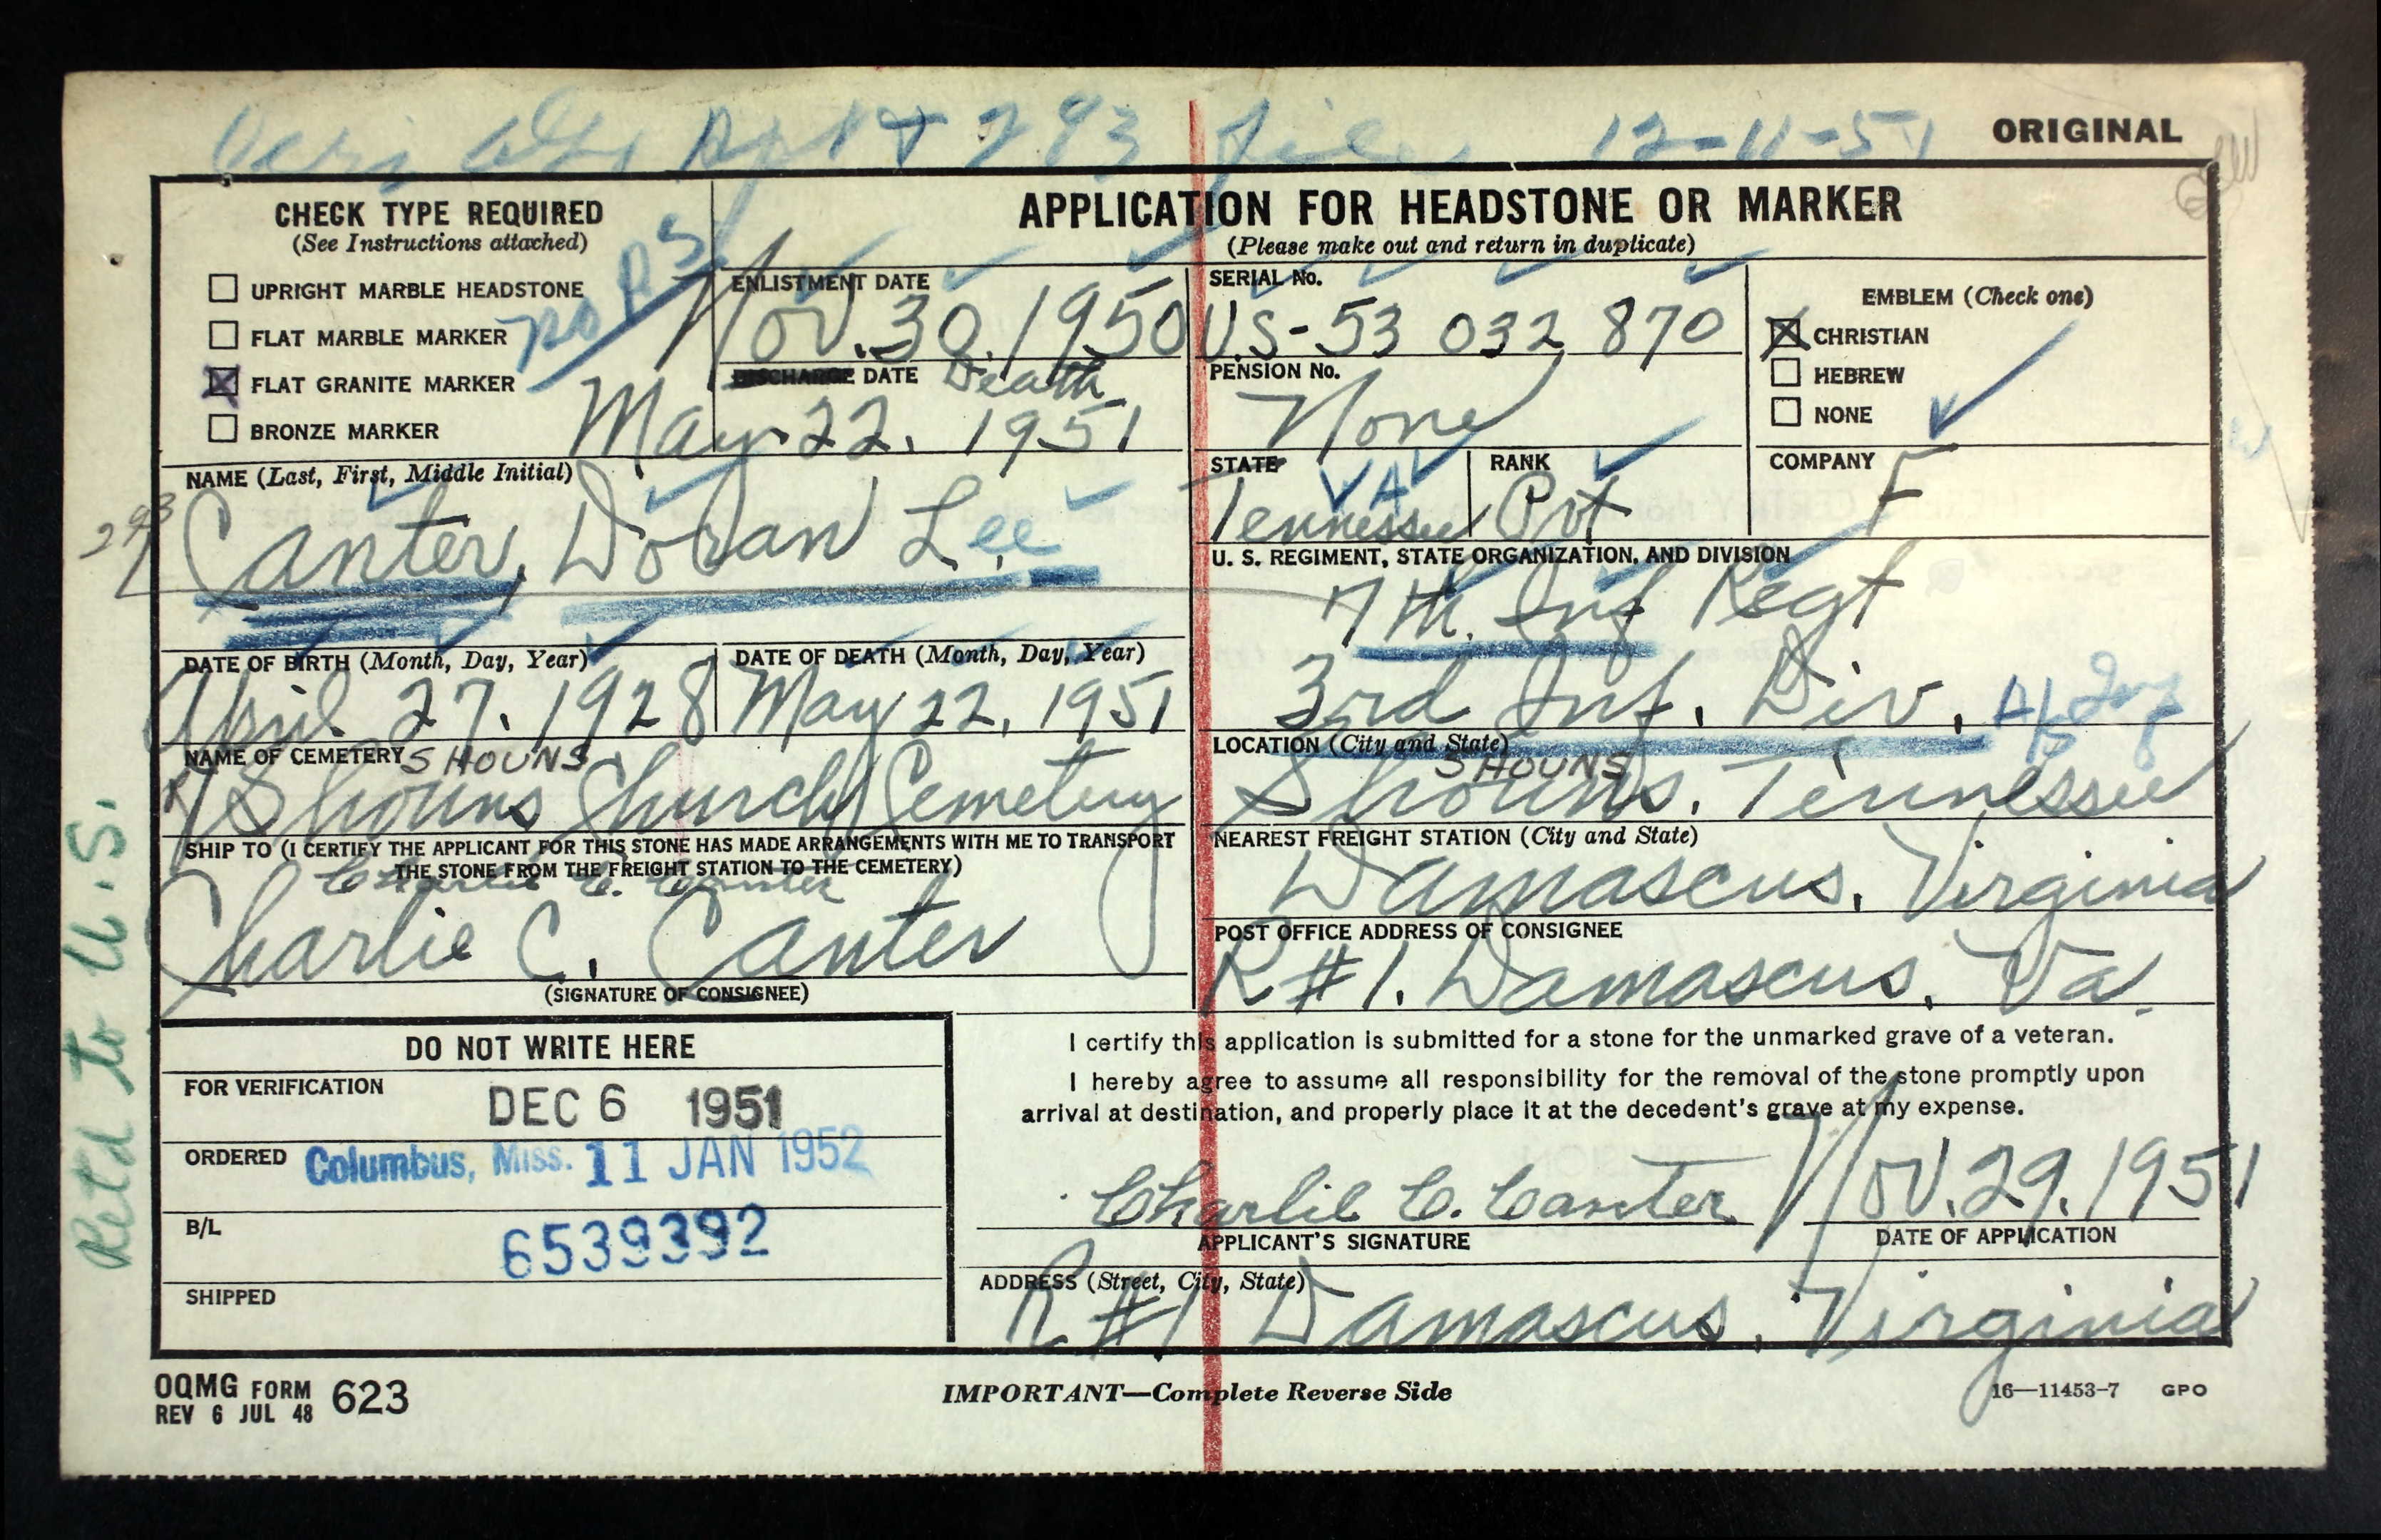 293 12-11-51 ORIGINAL
CHECK TYPE REQUIRED
(See Instructions attached)
☐ UPRIGHT MARBLE HEADSTONE
☐ FLAT MARBLE MARKER
☒ FLAT GRANITE MARKER
☐ BRONZE MARKER
APPLICATION FOR HEADSTONE OR MARKER
(Please make out and return in duplicate)
ENLISTMENT DATE
Nov. 30. 1950
DISCHARGE DATE Death
May 22. 1951
SERIAL No.
U.S-53 032 870
PENSION No.
None
EMBLEM (Check one)
☒ CHRISTIAN
☐ HEBREW
☐ NONE
NAME (Last, First, Middle Initial)
293
Canter, Doran Lee
STATE VA
Tennessee
RANK
Pvt
COMPANY
F
U. S. REGIMENT, STATE ORGANIZATION, AND DIVISION
7th. Inf Regt
3rd Inf. Div.
DATE OF BIRTH (Month, Day, Year)
April 27. 1928
DATE OF DEATH (Month, Day, Year)
May 22, 1951
NAME OF CEMETERY SHOUNS
Shouns Church Cemetery
LOCATION (City and State)
SHOUNS
Shouns. Tennessee
SHIP TO (I CERTIFY THE APPLICANT FOR THIS STONE HAS MADE ARRANGEMENTS WITH ME TO TRANSPORT
THE STONE FROM THE FREIGHT STATION TO THE CEMETERY)
Charlie C. Canter
Charlie C. Canter
(SIGNATURE OF CONSIGNEE)
NEAREST FREIGHT STATION (City and State)
Damascus, Virginia
POST OFFICE ADDRESS OF CONSIGNEE
R#1. Damascus, Va.
DO NOT WRITE HERE
FOR VERIFICATION
DEC 6 1951
ORDERED Columbus, Miss. 11 JAN 1952
B/L
6539392
SHIPPED
I certify this application is submitted for a stone for the unmarked grave of a veteran.
I hereby agree to assume all responsibility for the removal of the stone promptly upon
arrival at destination, and properly place it at the decedent's grave at my expense.
Charlie C. Canter Nov. 29. 1951
APPLICANT'S SIGNATURE DATE OF APPLICATION
ADDRESS (Street, City, State)
R#1 Damascus, Virginia
Retd to U.S.
OQMG FORM 623
REV 6 JUL 48
IMPORTANT—Complete Reverse Side
16—11453-7 GPO